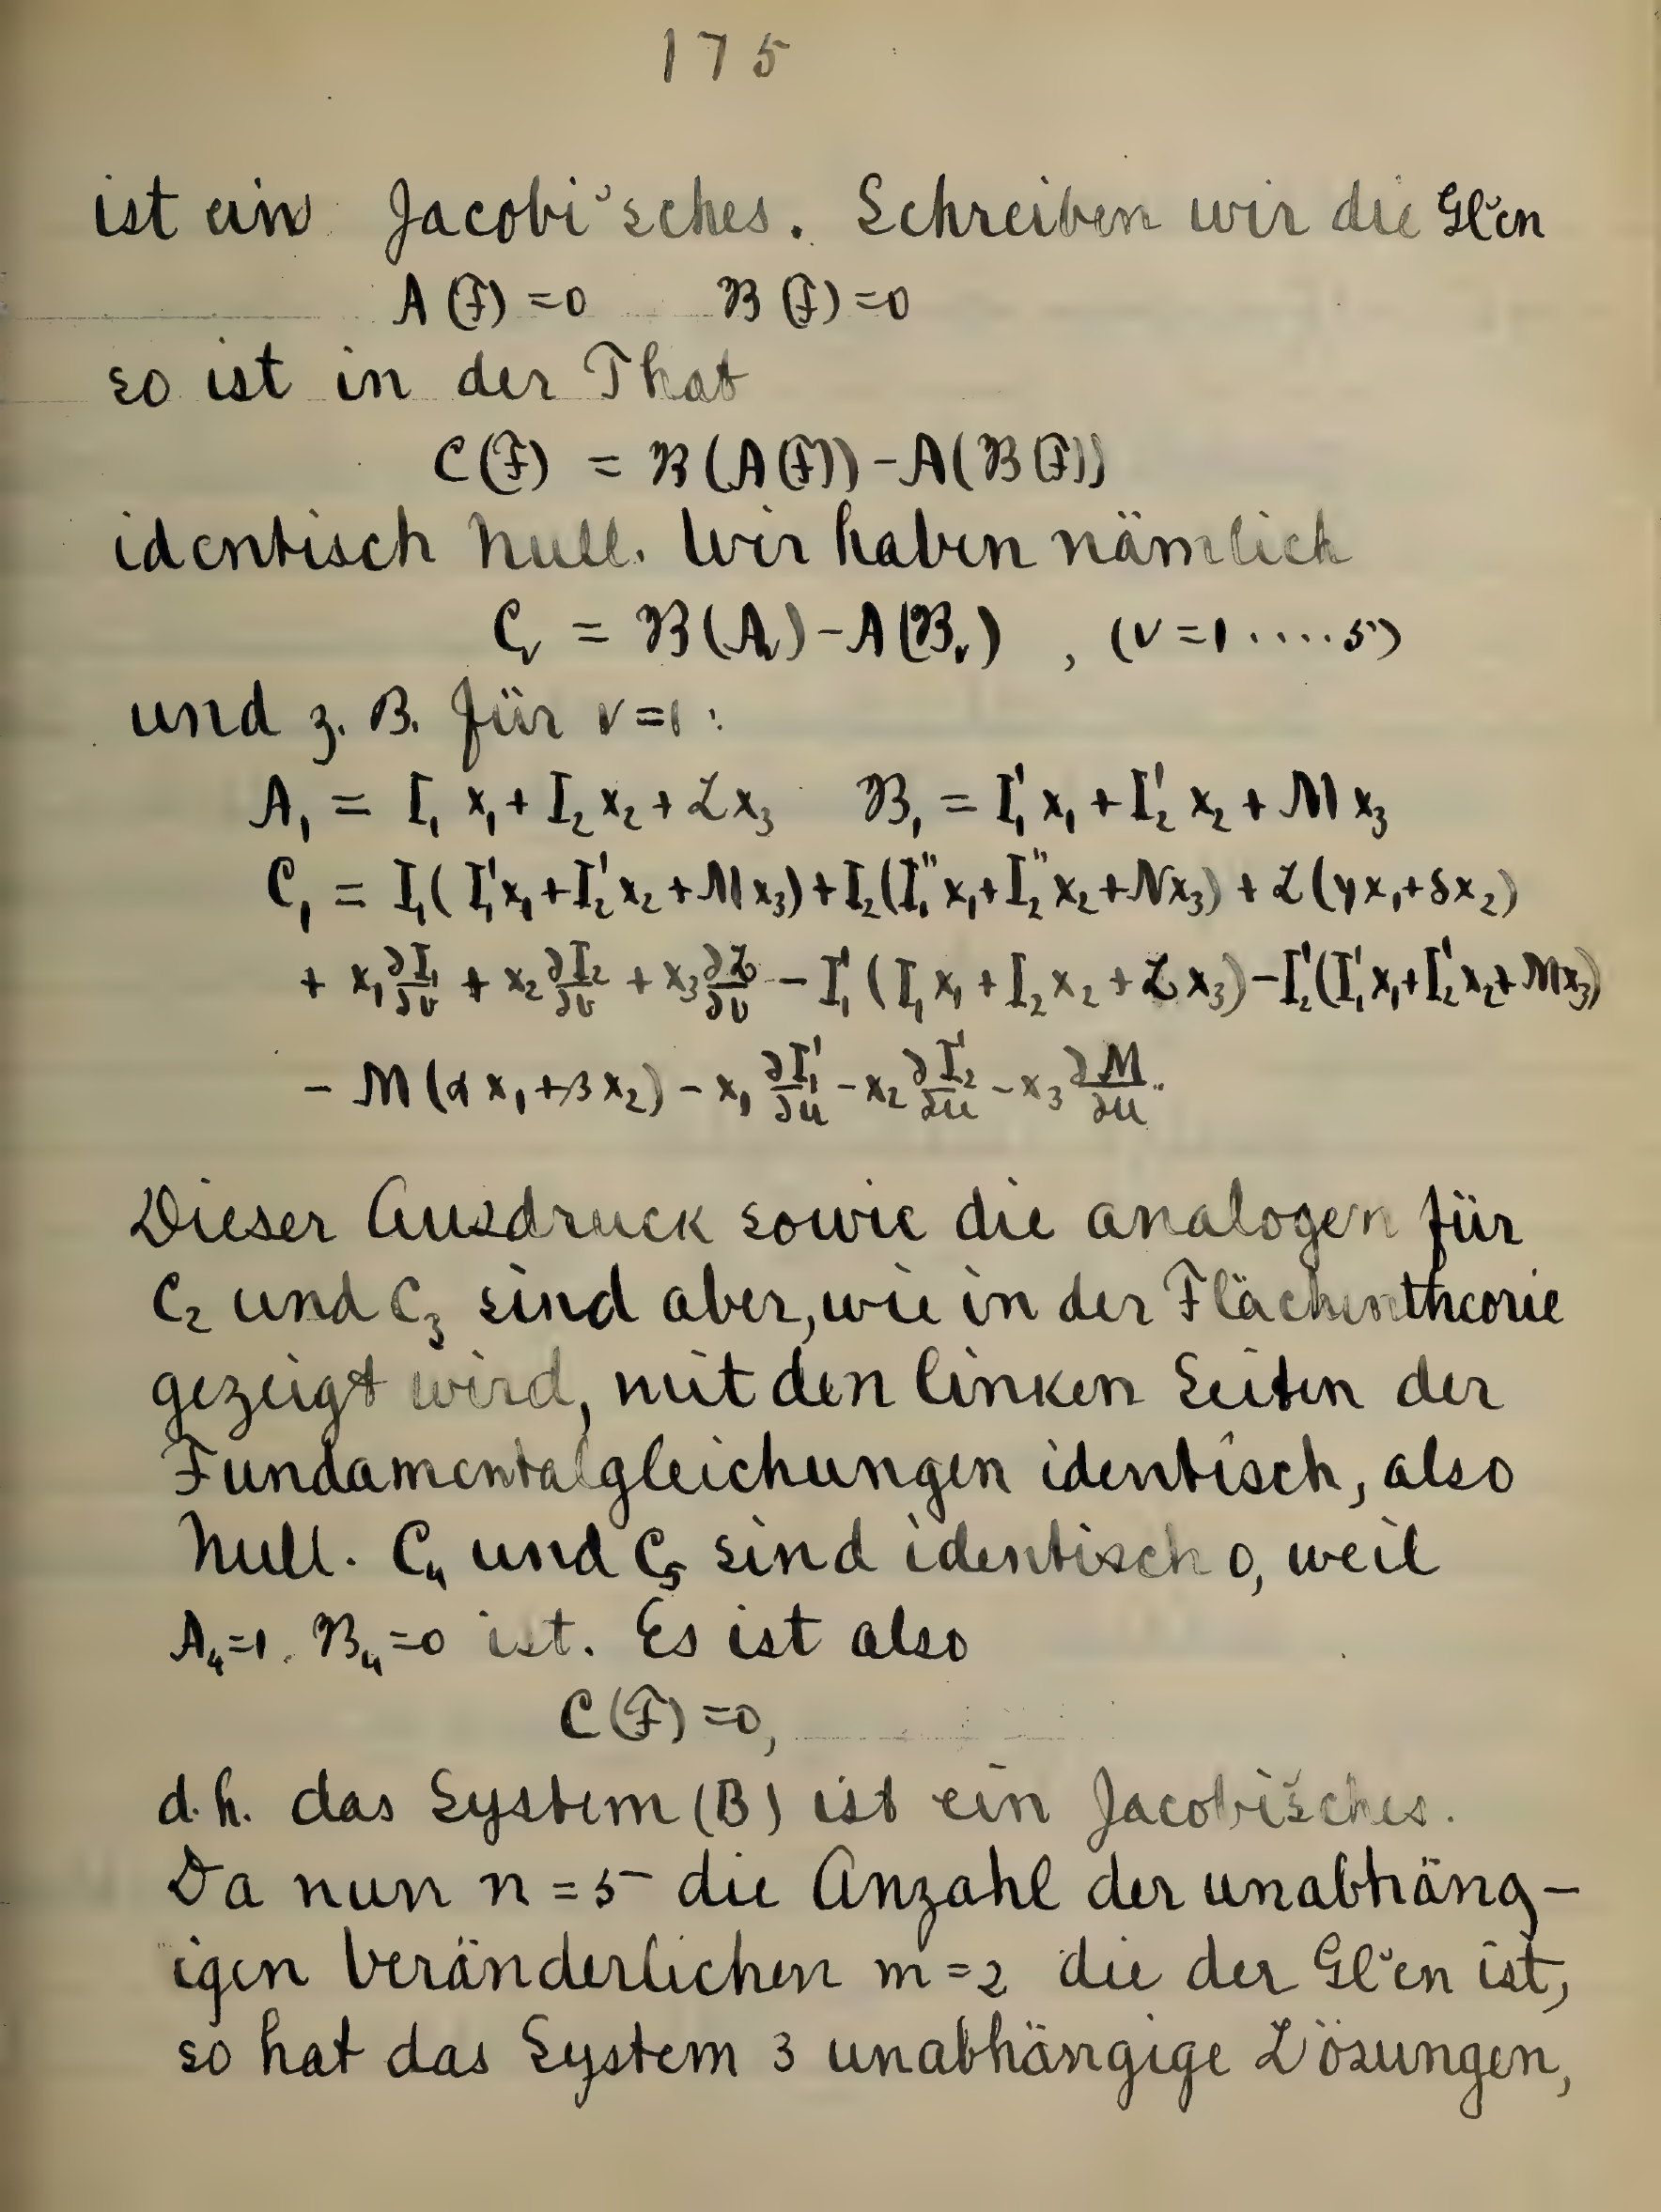 175
ist ein Jacobi'sches. Schreiben wir die Gl'en
A(F)=0 B(F)=0
so ist in der That
C(F) = B(A(F))-A(B(F))
identisch Null. Wir haben nämlich
C_ν = B(A_ν)-A(B_ν) , (ν=1.....5)
und z. B. für ν=1:
A₁ = I₁ x₁+I₂ x₂+L x₃ B₁ = I₁' x₁+I₂' x₂+M x₃
C₁ = I₁(I₁'x₁+I₂'x₂+Mx₃)+I₂(I₁''x₁+I₂''x₂+Nx₃)+L(γx₁+δx₂)
+ x₁ ∂I₁/∂v + x₂ ∂I₂/∂v + x₃ ∂L/∂v - I₁'(I₁x₁+I₂x₂+Lx₃)-I₂'(I₁'x₁+I₂'x₂+Mx₃)
- M(αx₁+βx₂) - x₁ ∂I₁'/∂u - x₂ ∂I₂'/∂u - x₃ ∂M/∂u.
Dieser Ausdruck sowie die analogen für
C₂ und C₃ sind aber, wie in der Flächentheorie
gezeigt wird, mit den linken Seiten der
Fundamentalgleichungen identisch, also
Null. C₄ und C₅ sind identisch 0, weil
A₄=1. B₄=0 ist. Es ist also
C(F)=0,
d.h. das System (B) ist ein Jacobi'sches.
Da nun n=5 die Anzahl der unabhäng-
igen Veränderlichen m=2 die der Gl'en ist,
so hat das System 3 unabhängige Lösungen,